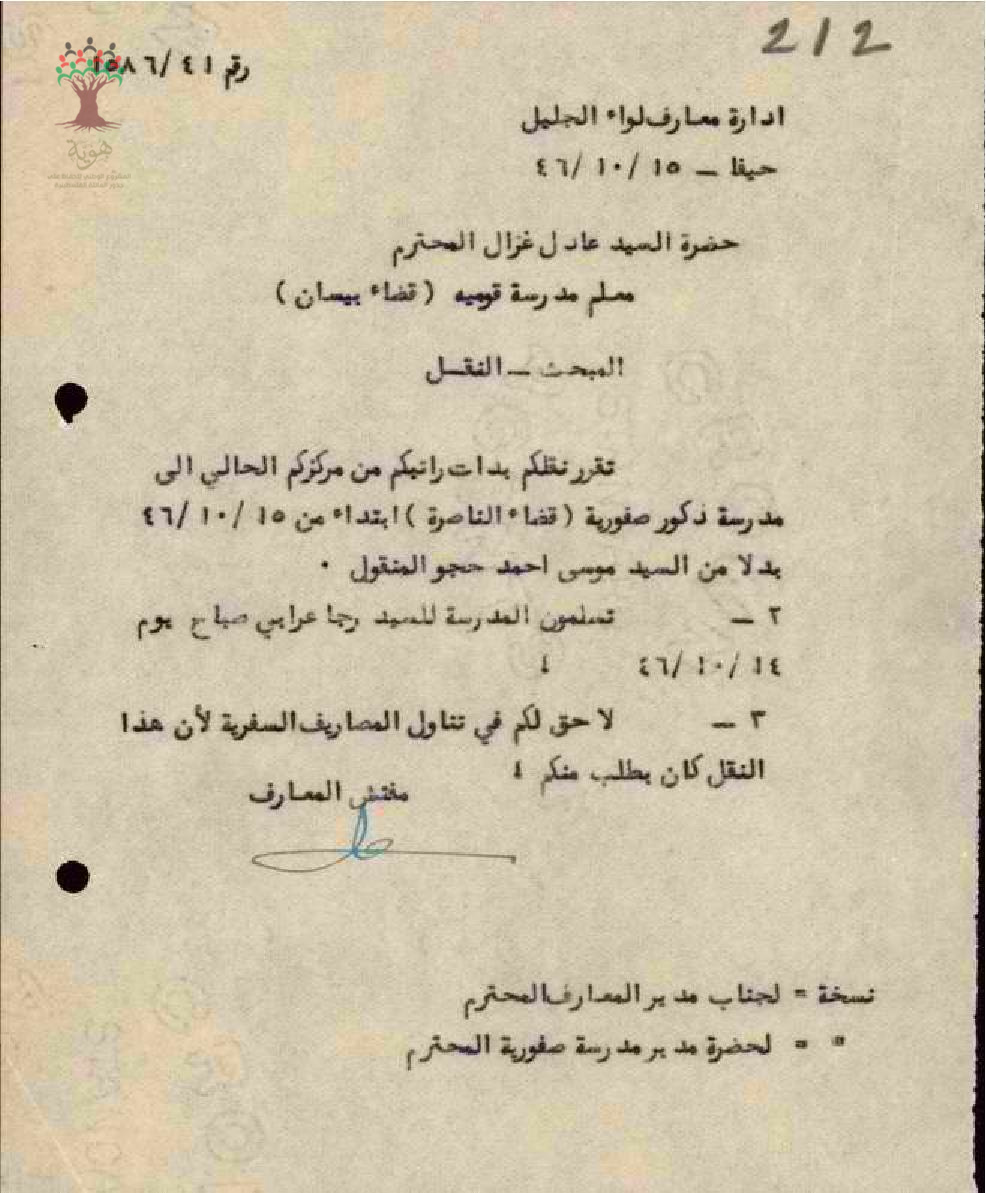 2/2
رقم ٤١/١٥٨٦
هوية
ادارة معارف لواء الجليل
حيفا – ١٥/ ١٠/ ٤٦
حضرة السيد عادل غزال المحترم
معلم مدرسة قوميه ( قضاء بيسان )
المبحث – النقل
تقرر نقلكم بذات راتبكم من مركزكم الحالي الى
مدرسة ذكور صفورية ( قضاء الناصرة ) ابتداء من ١٥/ ١٠/ ٤٦
بدلا من السيد موسى احمد حجو المنقول ٠
٢ – تسلمون المدرسة للسيد رجا عرابي صباح يوم
١٤/ ١٠/ ٤٦
٣ – لا حق لكم في تناول المصاريف السفرية لأن هذا
النقل كان بطلب منكم
مفتش المعارف
نسخة = لجناب مدير المعارف المحترم
" = لحضرة مدير مدرسة صفورية المحترم